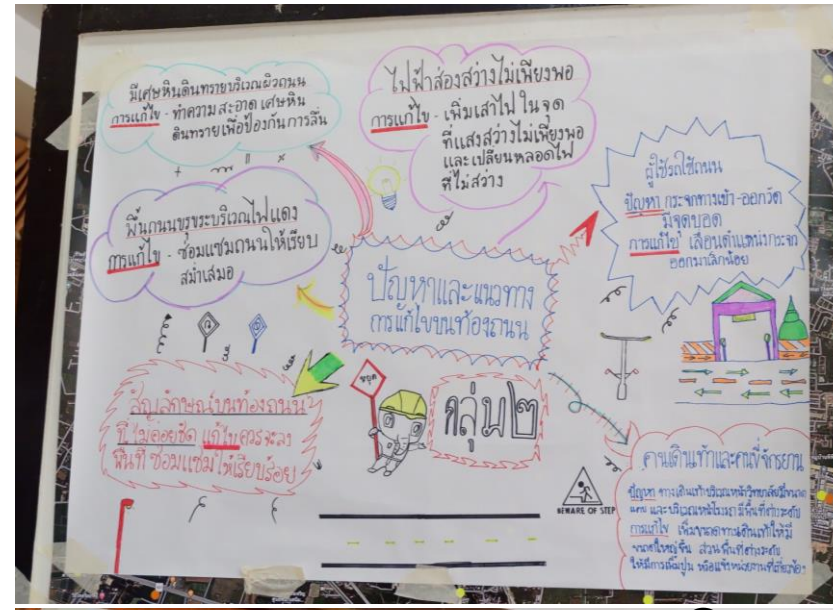 มีเศษหินดินทรายบริเวณผิวถนน
การแก้ไข - ทำความสะอาดเศษหิน
ดินทรายเพื่อป้องกันการลื่น
ไฟฟ้าส่องสว่างไม่เพียงพอ
การแก้ไข - เพิ่มเสาไฟในจุด
ที่แสงสว่างไม่เพียงพอ
และเปลี่ยนหลอดไฟ
ที่ไม่สว่าง
ผู้ใช้รถใช้ถนน
ปัญหา กระจกทางเข้า-ออกวัด
มีจุดบอด
การแก้ไข เลื่อนตำแหน่งกระจก
ออกมาเล็กน้อย
พื้นถนนขรุขระบริเวณไฟแดง
การแก้ไข - ซ่อมแซมถนนให้เรียบ
สม่ำเสมอ
ปัญหาและแนวทาง
การแก้ไขบนท้องถนน
สัญลักษณ์บนท้องถนน
ที่ไม่ค่อยชัด แก้ไขควรจะลง
พื้นที่ซ่อมแซมให้เรียบร้อย
หยุด
กลุ่ม๒
BEWARE OF STEP
คนเดินเท้าและคนขี่จักรยาน
ปัญหา ทางเดินเท้าบริเวณหน้าวิทยาลัยมีขนาด
แคบ และบริเวณหน้าโรงแรมมีพื้นที่ต่างระดับ
การแก้ไข เพิ่มขนาดทางเดินเท้าให้มี
ขนาดใหญ่ขึ้น ส่วนพื้นที่ต่างระดับ
ให้มีการเพิ่มปูน หรือแจ้งหน่วยงานที่เกี่ยวข้อง